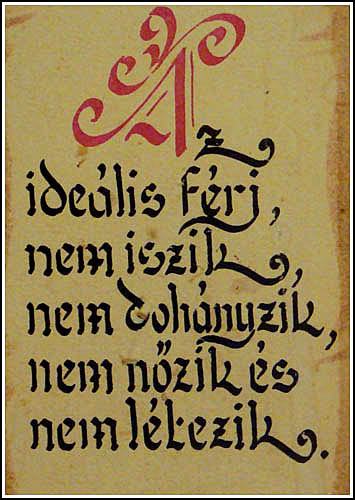 Az
ideális férj,
nem iszik,
nem dohányzik,
nem nőzik és
nem létezik.